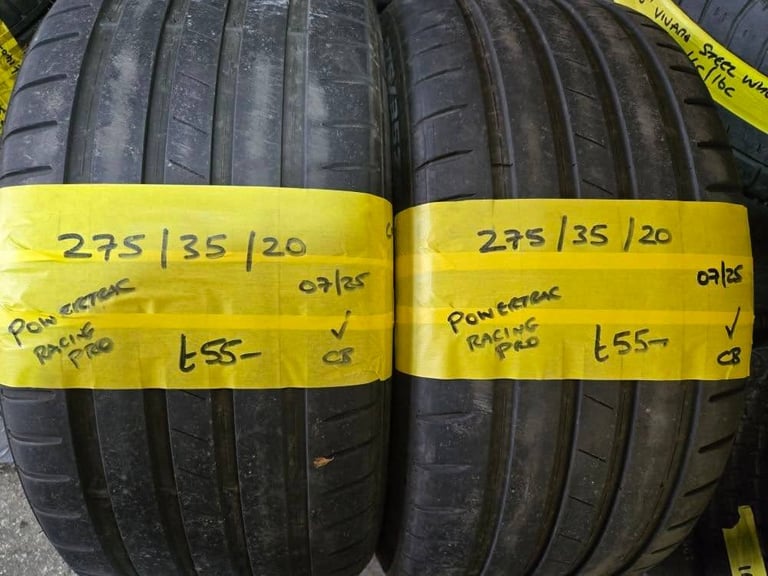 275/35/20
07/25
POWERTRAC
RACING
PRO
£55-
✓
CB
275/35/20
07/25
POWERTRAC
RACING
PRO
£55-
✓
CB
VIVARO
STEEL
16C